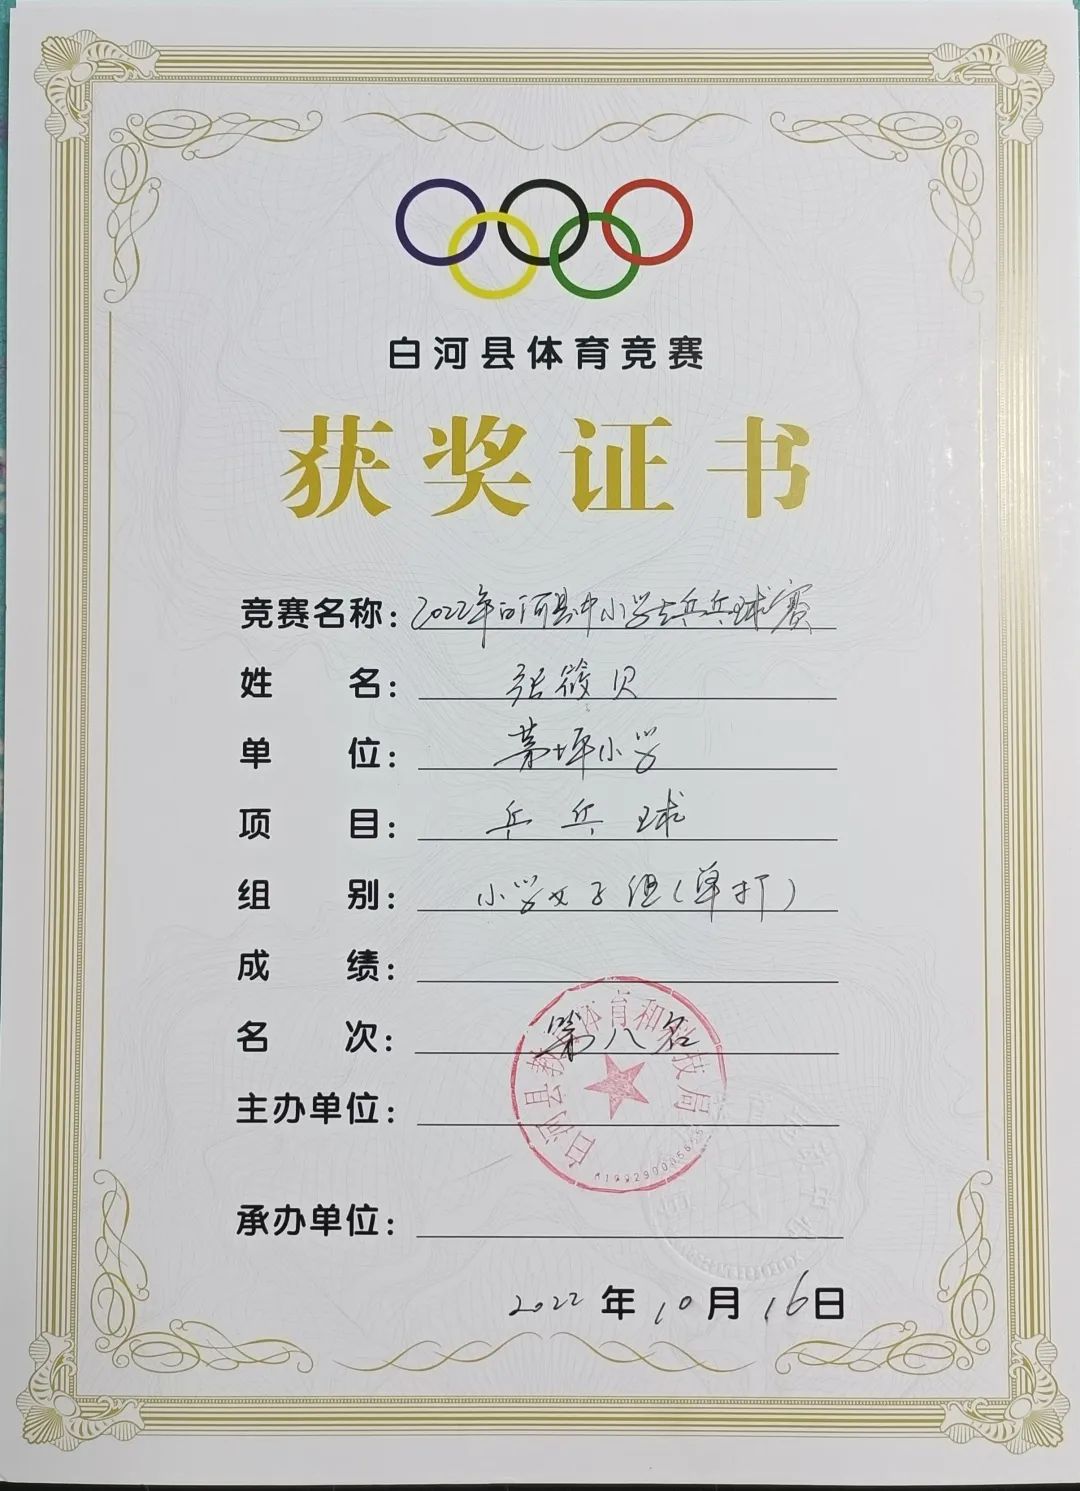 白河县体育竞赛
获奖证书
竞赛名称：2022年白河县中小学生乒乓球赛
姓名：张筱贝
单位：茅坪小学
项目：乒乓球
组别：小学女子组（单打）
成绩：
名次：第八名
主办单位：
白河县教育体育和科技局
承办单位：
2022年10月16日